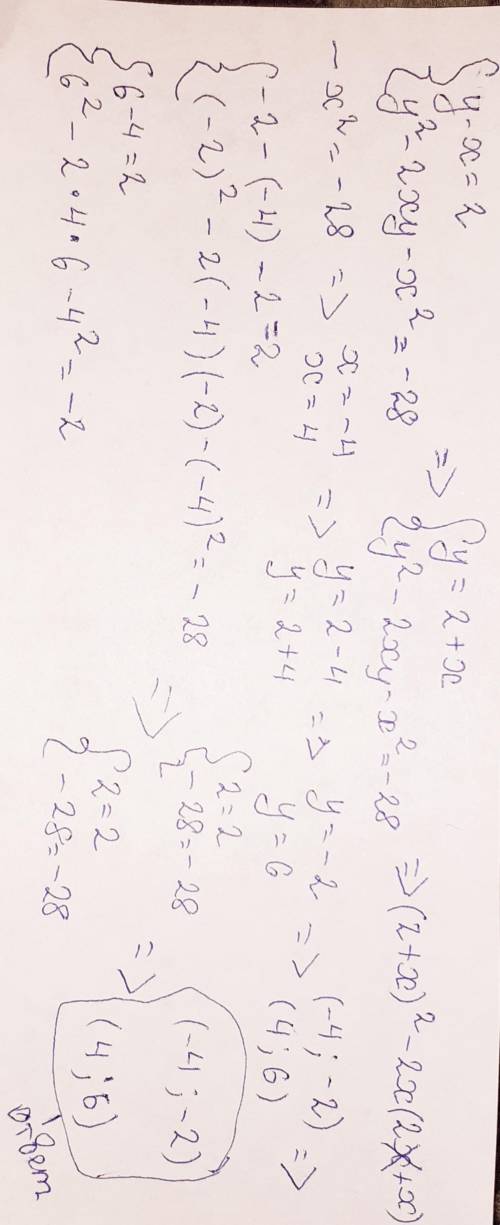 {y-x=2
{y²-2xy-x²=-28 => {y=2+x
{y²-2xy-x²=-28 => (2+x)²-2x(2+x)
-x²=-28 => x=-4
x=4 => y=2-4
y=2+4 => y=-2
y=6 => (-4;-2)
(4;6) =>
{-2-(-4)-2=2
{(-2)²-2(-4)(-2)-(-4)²=-28 => {2=2
{-28=-28
{6-4=2
{6²-2·4·6-4²=-2
{2=2
{-28=-28 => (-4;-2)
(4;6)
ответ